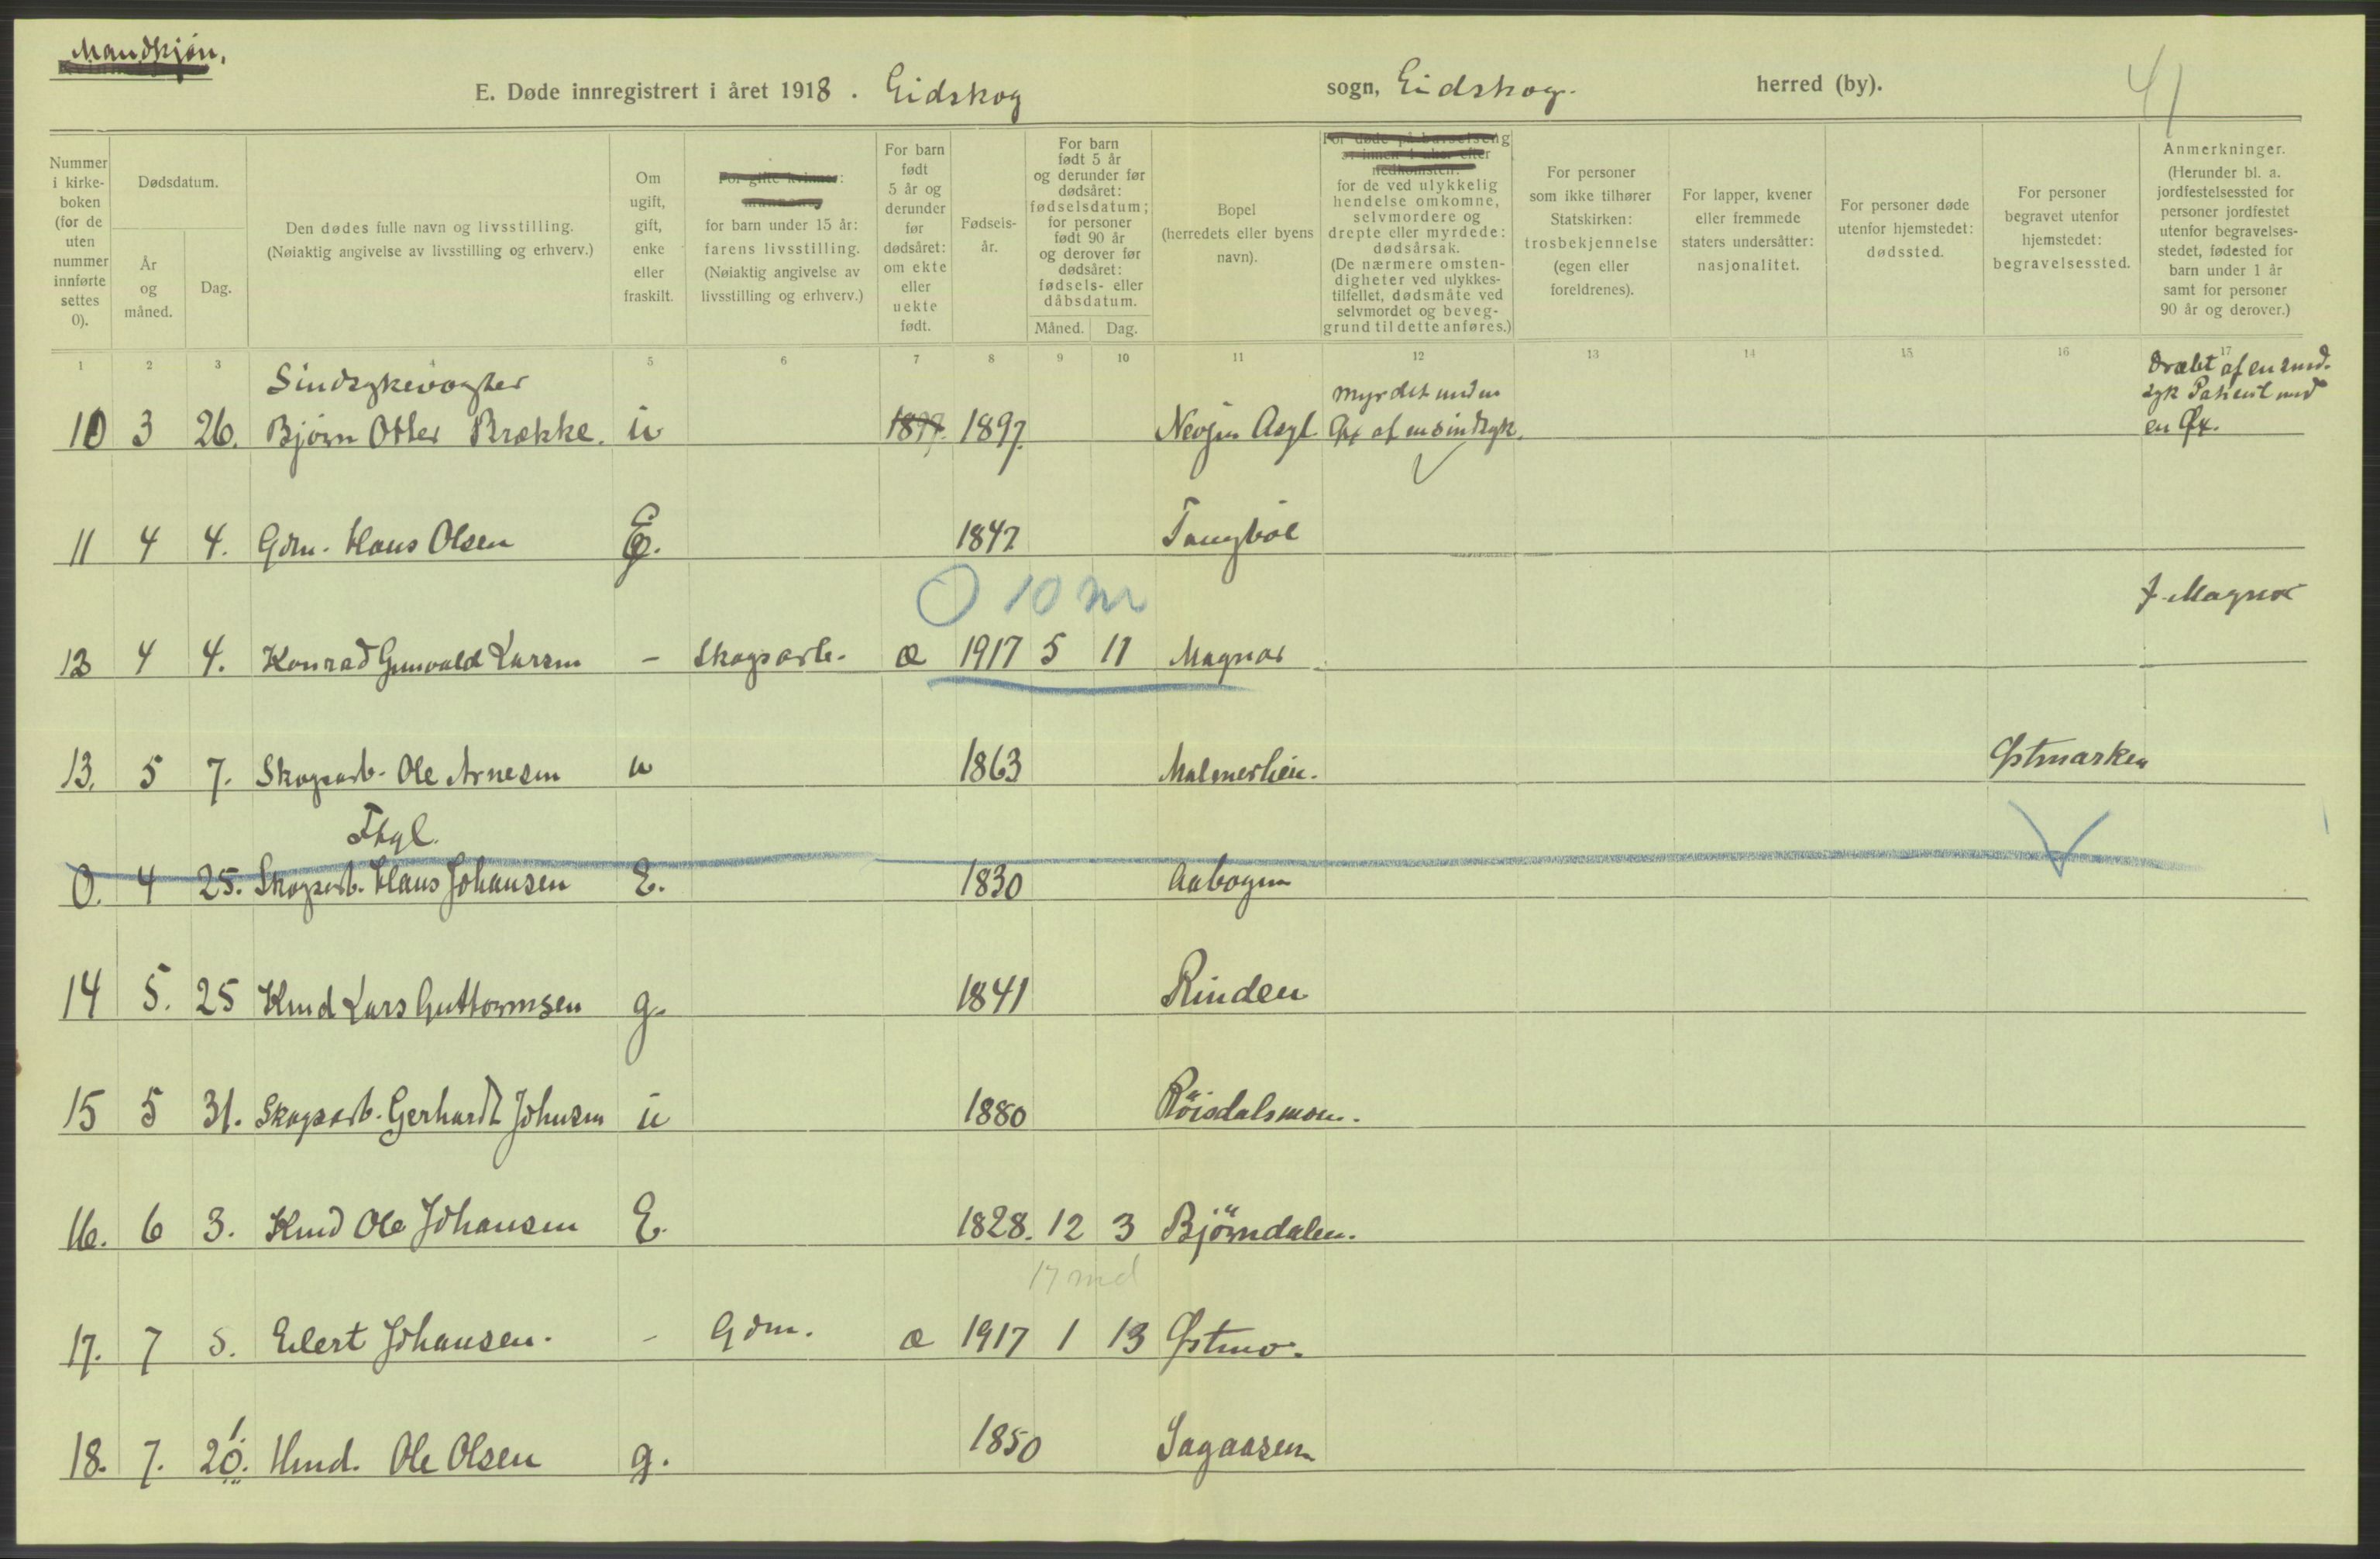 Mandkjøn.
41
E. Døde innregistrert i året 1918. Eidskog sogn, Eidskog. herred (by).
Nummer i kirke- boken (for de uten nummer innførte settes 0).
Dødsdatum.
År og måned.
Dag.
Den dødes fulle navn og livsstilling.
(Nøiaktig angivelse av livsstilling og erhverv.)
Om ugift, gift, enke eller fraskilt.
for barn under 15 år:
farens livsstilling.
(Nøiaktig angivelse av
livsstilling og erhverv.)
For barn født 5 år og derunder før dødsåret: om ekte eller uekte født.
Fødsels- år.
For barn født 5 år og derunder før dødsåret: fødselsdatum; for personer født 90 år og derover før dødsåret: fødsels- eller dåbsdatum.
Måned. Dag.
Bopel
(herredets eller byens
navn).
For døde på barselseng
nedkomsten:
for de ved ulykkelig
hendelse omkomne,
selvmordere og
drepte eller myrdede:
dødsårsak.
(De nærmere omsten-
digheter ved ulykkes-
tilfellet, dødsmåte ved
selvmordet og beveg-
grund til dette anføres.)
For personer
som ikke tilhører
Statskirken:
trosbekjennelse
(egen eller
foreldrenes).
For lapper, kvener
eller fremmede
staters undersåtter:
nasjonalitet.
For personer døde
utenfor hjemstedet:
dødssted.
For personer
begravet utenfor
hjemstedet:
begravelsessted.
Anmerkninger.
(Herunder bl. a.
jordfestelsessted for
personer jordfestet
utenfor begravelses-
stedet, fødested for
barn under 1 år
samt for personer
90 år og derover.)
1 2 3 5 6 7 8 9 10 11 12 13 14 15 16 17
Sindsykevogter
10 3 26. Bjørn Otter Brække. u 1897. 1897. Asyl
Myrdet med en
Øx af en sindsyk.
Dræbt af en sind-
syk Patient med
en Øx.
11 4 4. Gdm. Hans Olsen E. 1847 Tangbøl
O 10 m
f. Magnor
12 4 4. Konrad Gunvald Larsen - Skogsarb. æ 1917 5 11 Magnor
13. 5 7. Skogsarb. Ole Arnesen u 1863 Malmerhein. Østmarken
Fhgl.
0. 4 25. Skogsarb. Hans Johansen E. 1830 Aabogen
14 5. 25 Kmd Lars Guttormsen g. 1841 Rinden
15 5 31. Skogsarb. Gerhardt Johnsen u 1880 Röisdalsmoen.
16. 6 3. Kmd Ole Johansen E. 1828. 12 3 Björndalen.
17 md
17. 7 5. Eilert Johansen. - Gdm. æ 1917 1 13 Østmo.
18. 7. 20. Hmd. Ole Olsen g. 1850 Sagaasen